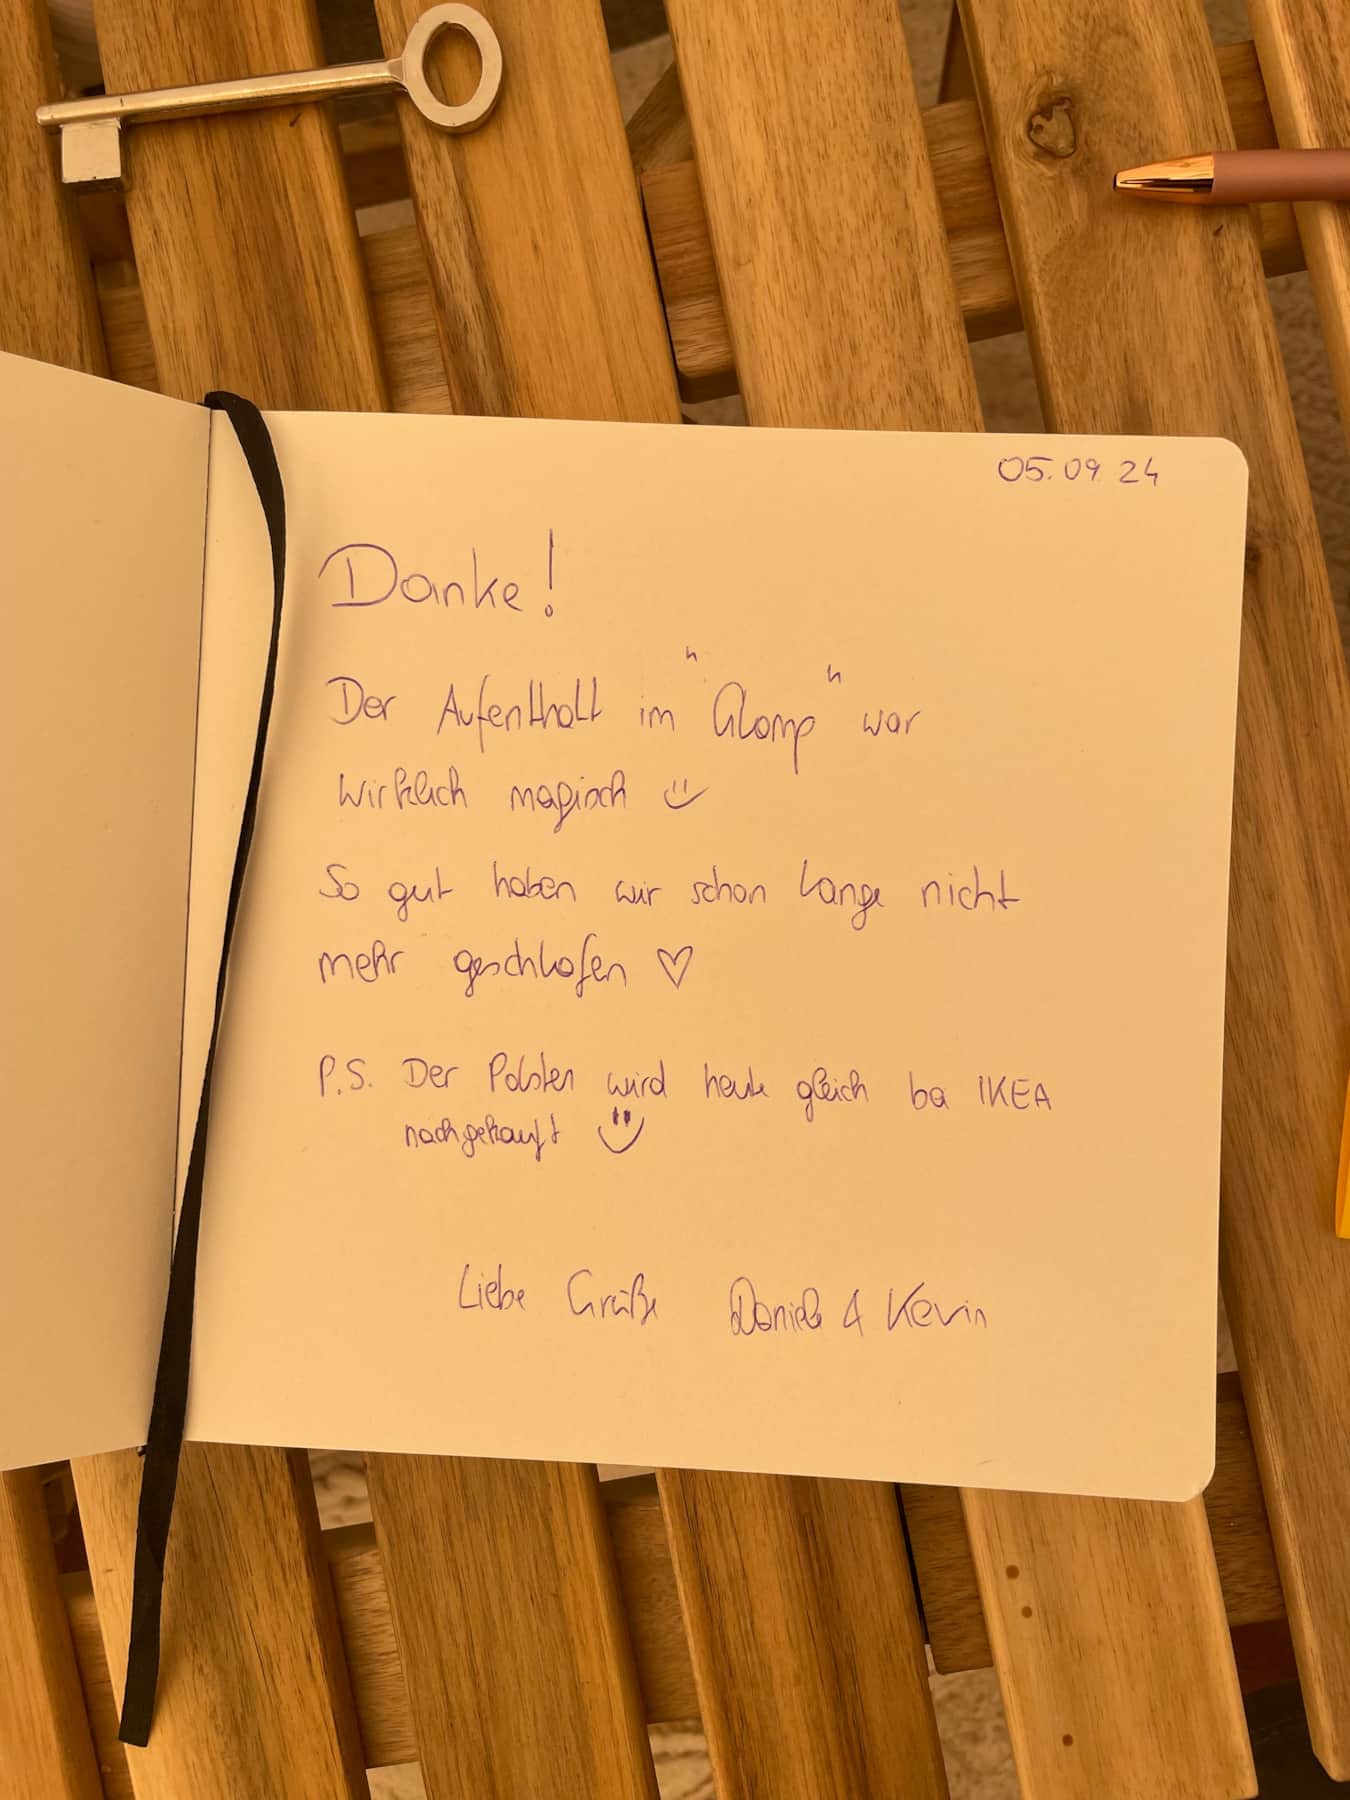 05.09.24
Danke!
Der Aufenthalt im "Glamp" war
wirklich magisch
So gut haben wir schon lange nicht
mehr geschlafen ♡
P.S. Der Polster wird heute gleich bei IKEA
nachgekauft
Liebe Grüße Daniela & Kevin